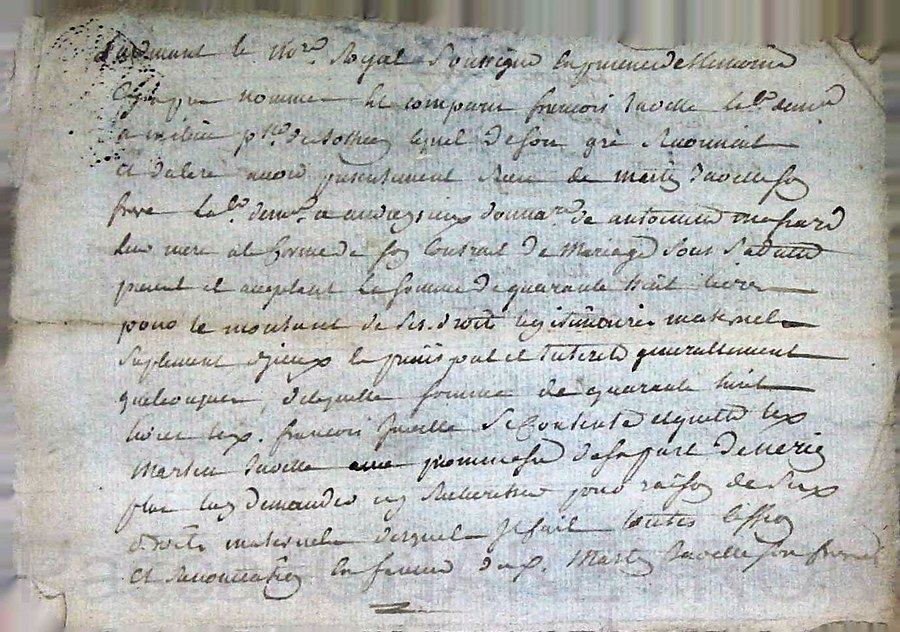 Pardevant le No.re Royal Soussigné En presence des temoins
nommes A comparu françois Javelle lab.r demeur.t
lequel de son gré Reconnait
Et declare avoir presentement Receu de Martin Javelle son
frere lab.r demeur.t donna.re de antoinette
leur mere a la forme de son Contrat de Mariage Sous
present et acceptant la Somme de quarante huit livres
pour le montant de Ses droits légitimaires maternels
Suplement d'yceux En principal et Interets generallement
quelconques, delaquelle Somme de quarante huit
livres led. françois Javelle Se Contente et quitte led.
Martin Javelle avec promesse de Sa part de ne rien
plus luy demander ny Rechercher pour raison de Ses d.
droits maternels desquels Il fait toutes Cession
Et Renonciation En faveur dud. Martin Javelle Son frere